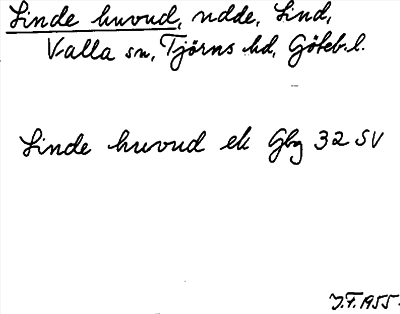 Linde huvud, udde, Lind,
Valla sn, Tjörns hd, Göteb. l.
Linde huvud ek Gbg 32 SV
J.F. 1955.